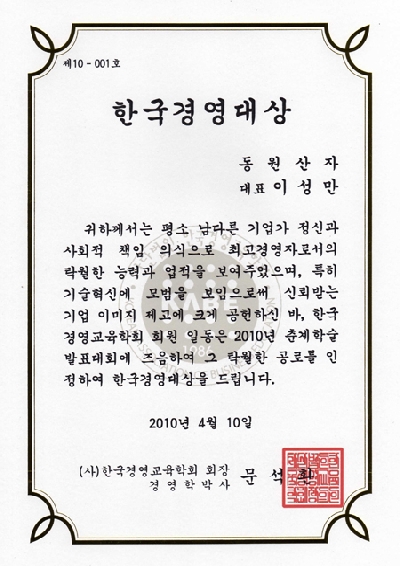 제10-001호
한국경영대상
동원산자
대표 이성만
귀하께서는 평소 남다른 기업가 정신과
사회적 책임 의식으로 최고경영자로서의
탁월한 능력과 업적을 보여주었으며, 특히
기술혁신에 모범을 보임으로써 신뢰받는
기업 이미지 제고에 크게 공헌하신 바, 한국
경영교육학회 회원 일동은 2010년 춘계학술
발표대회에 즈음하여 그 탁월한 공로를 인
정하여 한국경영대상을 드립니다.
2010년 4월 10일
(사)한국경영교육학회 회장
경영학박사 문석환